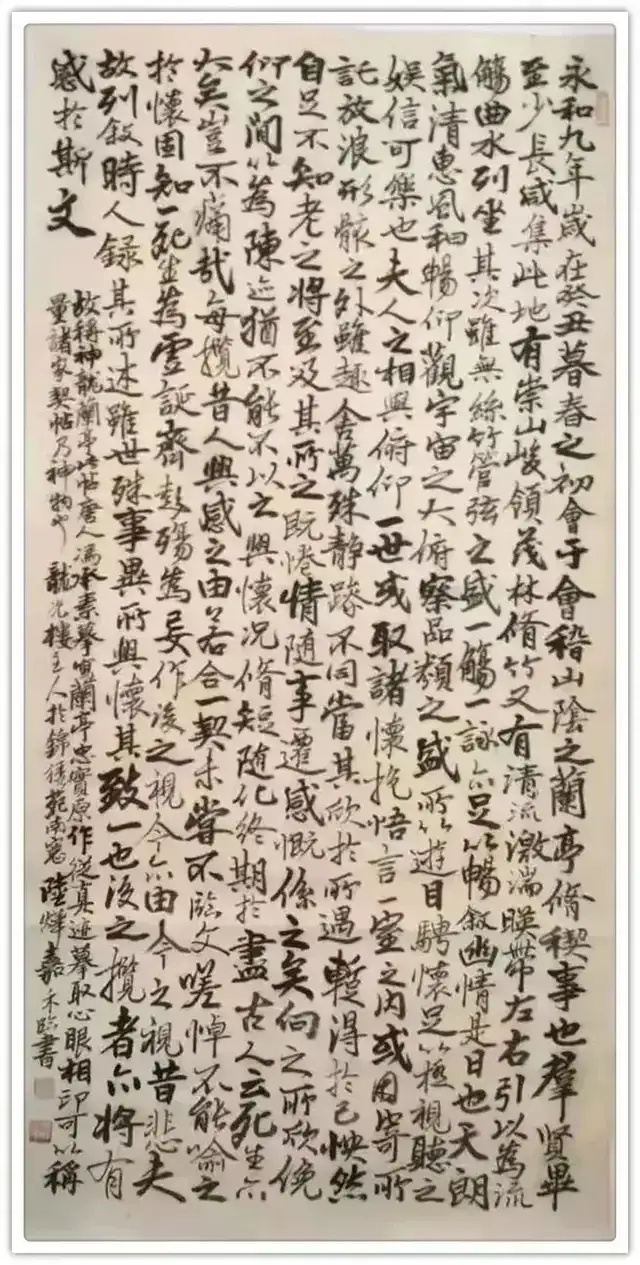 永和九年歲在癸丑暮春之初會于會稽山陰之蘭亭脩稧事也羣賢畢
至少長咸集此地有崇山峻領茂林脩竹又有清流激湍暎帶左右引以為流
觴曲水列坐其次雖無絲竹管弦之盛一觴一詠亦足以暢敘幽情是日也天朗
氣清惠風和暢仰觀宇宙之大俯察品類之盛所以遊目騁懷足以極視聽之
娛信可樂也夫人之相與俯仰一世或取諸懷抱悟言一室之內或因寄所
託放浪形骸之外雖趣舍萬殊静躁不同當其欣於所遇暫得於己怏然
自足不知老之將至及其所之既惓情隨事遷感慨係之矣向之所欣俛
仰之間以為陳迹猶不能不以之興懷況脩短隨化終期於盡古人云死生亦
大矣豈不痛哉每攬昔人興感之由若合一契未嘗不臨文嗟悼不能喻之
於懷固知一死生為虛誕齊彭殤為妄作後之視今亦由今之視昔悲夫
故列敘時人錄其所述雖世殊事異所以興懷其致一也後之攬者亦將有
感於斯文
故稱神龍蘭亭 帖唐人馮承素摹寫蘭亭忠實原作從真迹摹取心眼相印可以稱
量諸家契帖乃神物也 龍光樓主人於錦繡苑南窗 陸燁 嘉禾臨書